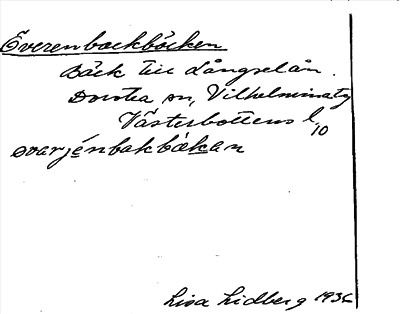 Överenbackbäcken
Bäck till Långselån.
Dorotea sn, Vilhelmina tg
Västerbottens l
10
överjénbakbäkan
Lisa Lidberg 1936